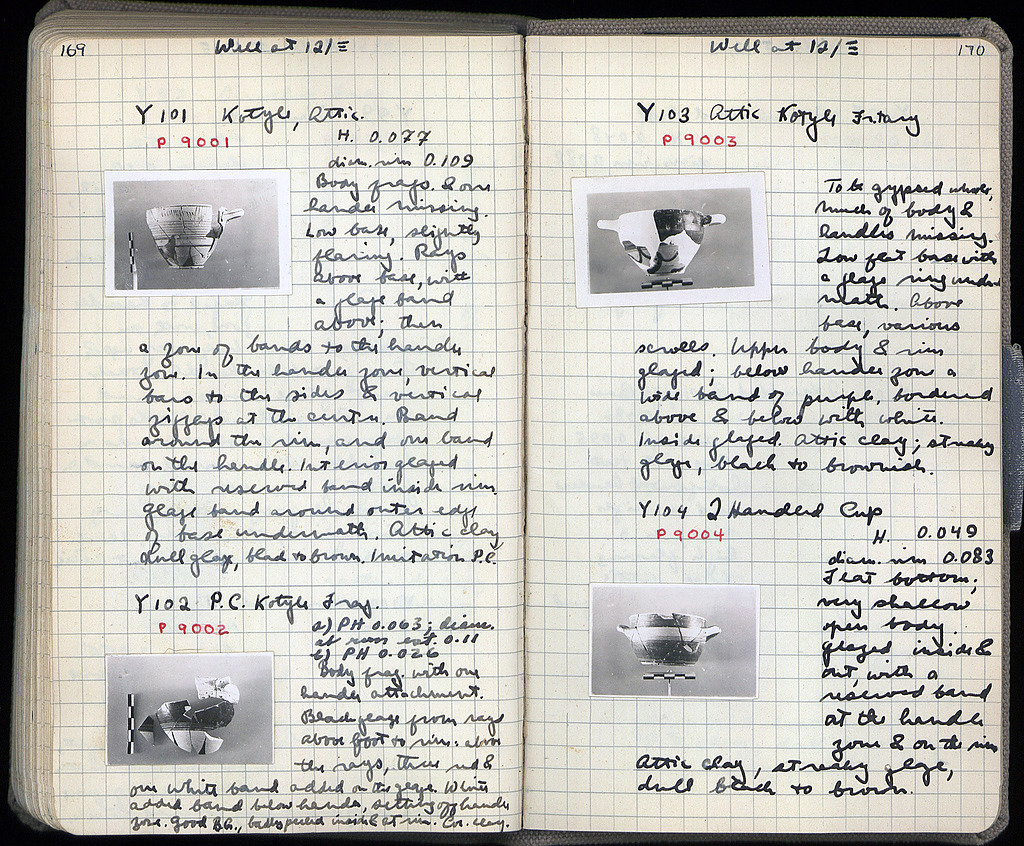 169
Well at 12/Ξ
Y 101 Kotyle, Attic.
P 9001
H. 0.077
diam. rim 0.109
Body frags. & one
handle missing.
Low base, slightly
flaring. Rays
above base, with
a glaze band
above; then
a zone of bands to the handle
zone. In the handle zone, vertical
bars to the sides & vertical
zigzags at the center. Band
around the rim, and one band
on the handle. Interior glazed
with reserved band inside rim.
Glaze band around outer edge
of base underneath. Attic clay,
dull glaze, black to brown. Imitation P.C.
Y 102 P.C. Kotyle Frag.
P 9002
a) PH 0.063; diam.
at rim est. 0.11
b) PH 0.026
Body frag. with one
handle attachment.
Black glaze from rays
above foot to rim: above
the rays, three red &
one white band added on the glaze. White
added band below handle, setting off handle
zone. Good B.G., badly peeled inside & at rim. Cor. clay.
Well at 12/Ξ
170
Y 103 Attic Kotyle Fr.tary
P 9003
To be gypsed whole,
much of body &
handles missing.
Low flat base with
a glaze ring under
neath. Above
base, various
scrolls. Upper body & rim
glazed; below handle zone a
wide band of purple, bordered
above & below with white.
Inside glazed. Attic clay; streaky
glaze, black to brownish.
Y 104 2 Handled Cup
P 9004
H. 0.049
diam. rim 0.083
Flat bottom;
very shallow
open body.
Glazed inside &
out, with a
reserved band
at the handle
zone & on the rim
Attic clay, streaky glaze,
dull black to brown.